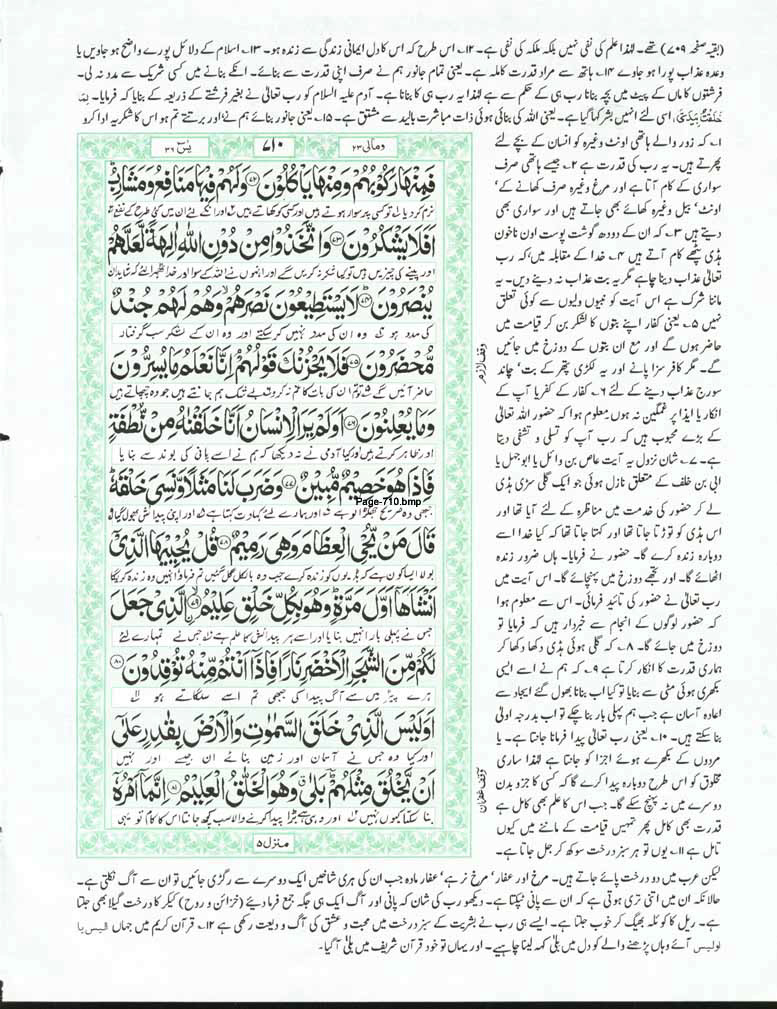 (بقیہ صفحہ ۷۰۹) تھے۔ لہذا علم کی نفی نہیں بلکہ ملکہ کی نفی ہے۔ ۱۲؎ اس طرح کہ اس کا دل ایمانی زندگی سے زندہ ہو۔ ۱۳؎ اسلام کے دلائل پورے واضح ہو جاویں یا
وعدہ عذاب پورا ہو جاوے ۱۴؎ ہاتھ سے مراد قدرت کاملہ ہے۔ یعنی تمام جانور ہم نے صرف اپنی قدرت سے بنائے۔ انکے بنانے میں کسی شریک سے مدد نہ لی۔
فرشتوں کا ماں کے پیٹ میں بچہ بنانا رب ہی کے حکم سے ہے لہذا یہ رب ہی کا بنانا ہے۔ آدم علیہ السلام کو رب تعالیٰ نے بغیر فرشتے کے ذریعہ کے بنایا کہ فرمایا۔ لِمَا
خَلَقْتُ بِيَدَيَّ، اسی لئے انہیں بشر کہا گیا ہے۔ یعنی اللہ کی بنائی ہوئی ذات مباشرت بالید سے مشتق ہے۔ ۱۵؎ یعنی جانور بنائے ہم نے اور برتتے تم ہو اس کا شکریہ ادا کرو
یٰسٓ ۳۶
۷۱۰
ومالی ۲۳
فَمِنْهَا رَكُوْبُهُمْ وَمِنْهَا يَاْكُلُوْنَ ۷۲ وَلَهُمْ فِيْهَا مَنَافِعُ وَمَشَارِبُ
نرم کر دیا تو کسی پر سوار ہوتے ہیں اور کسی کو کھاتے ہیں اور انکے لئے ان میں کئی طرح کے نفع
اَفَلَا يَشْكُرُوْنَ ۷۳ وَاتَّخَذُوْا مِنْ دُوْنِ اللّٰهِ اٰلِهَةً لَّعَلَّهُمْ
اور پینے کی چیزیں ہیں تو کیا شکر نہ کریں گے اور انہوں نے اللہ کے سوا اور خدا ٹھہرا لئے کہ شاید ان
يُنْصَرُوْنَ ۷۴ لَا يَسْتَطِيْعُوْنَ نَصْرَهُمْ وَهُمْ لَهُمْ جُنْدٌ
کی مدد ہو وہ ان کی مدد نہیں کر سکتے اور وہ ان کے لشکر سب گرفتار
مُّحْضَرُوْنَ ۷۵ فَلَا يَحْزُنْكَ قَوْلُهُمْ اِنَّا نَعْلَمُ مَا يُسِرُّوْنَ
حاضر آئیں گے تو تم ان کی بات کا غم نہ کرو بے شک ہم جانتے ہیں جو وہ چھپاتے ہیں
وَمَا يُعْلِنُوْنَ ۷۶ اَوَلَمْ يَرَ الْاِنْسَانُ اَنَّا خَلَقْنٰهُ مِنْ نُّطْفَةٍ
اور ظاہر کرتے ہیں اور کیا آدمی نے نہ دیکھا کہ ہم نے اسے پانی کی بوند سے بنایا
فَاِذَا هُوَ خَصِيْمٌ مُّبِيْنٌ ۷۷ وَضَرَبَ لَنَا مَثَلًا وَّنَسِيَ خَلْقَهٗ
جبھی وہ صریح جھگڑالو ہے اور ہمارے لئے کہاوت کہتا ہے اور اپنی پیدائش بھول گیا
Page-710.bmp
قَالَ مَنْ يُّحْيِ الْعِظَامَ وَهِيَ رَمِيْمٌ ۷۸ قُلْ يُحْيِيْهَا الَّذِيْۤ
بولا ایسا کون ہے کہ ہڈیوں کو زندہ کرے جب وہ بالکل گل گئیں تم فرماؤ انہیں وہ زندہ کریگا
اَنْشَاَهَاۤ اَوَّلَ مَرَّةٍ وَهُوَ بِكُلِّ خَلْقٍ عَلِيْمٌ ۷۹ الَّذِيْ جَعَلَ
جس نے پہلی بار انہیں بنایا اور اسے ہر پیدائش کا علم ہے جس نے تمہارے لئے
لَكُمْ مِّنَ الشَّجَرِ الْاَخْضَرِ نَارًا فَاِذَاۤ اَنْتُمْ مِّنْهُ تُوْقِدُوْنَ ۸۰
ہرے پیڑ میں سے آگ پیدا کی جبھی تم اسے سلگاتے ہو
اَوَلَيْسَ الَّذِيْ خَلَقَ السَّمٰوٰتِ وَالْاَرْضَ بِقٰدِرٍ عَلٰۤى
اور کیا وہ جس نے آسمان اور زمین بنائے ان جیسے اور نہیں
اَنْ يَّخْلُقَ مِثْلَهُمْ بَلٰى وَهُوَ الْخَلّٰقُ الْعَلِيْمُ ۸۱ اِنَّمَاۤ اَمْرُهٗۤ
بنا سکتا کیوں نہیں اور وہی ہے بڑا پیدا کرنے والا سب کچھ جانتا اس کا کام تو یہی
منزل ۵
وقف لازم
وقف غفران
۱؎ کہ زور والے ہاتھی اونٹ وغیرہ کو انسان کے بچے لئے
پھرتے ہیں۔ یہ رب کی قدرت ہے ۲؎ جیسے ہاتھی صرف
سواری کے کام آتا ہے اور مرغ وغیرہ صرف کھانے کے‘
اونٹ‘ بیل وغیرہ کھائے بھی جاتے ہیں اور سواری بھی
دیتے ہیں ۳؎ کہ ان کے دودھ گوشت پوست اون ناخون
ہڈی پٹھے کام آتے ہیں ۴؎ خدا کے مقابلہ میں‘ کہ رب
تعالیٰ عذاب دینا چاہے مگر یہ بت عذاب نہ دینے دیں۔ یہ
ماننا شرک ہے اس آیت کو نبیوں ولیوں سے کوئی تعلق
نہیں ۵؎ یعنی کفار اپنے بتوں کا لشکر بن کر قیامت میں
حاضر ہوں گے اور مع ان بتوں کے دوزخ میں جائیں
گے۔ مگر کافر سزا پانے اور یہ لکڑی پتھر کے بت‘ چاند
سورج عذاب دینے کے لئے ۶؎ کفار کے کفر یا آپ کے
انکار یا ایذا پر غمگین نہ ہوں معلوم ہوا کہ حضور اللہ تعالیٰ
کے بڑے محبوب ہیں کہ رب آپ کو تسلی و تشفی دیتا
ہے۔ ۷؎ شان نزول یہ آیت عاص بن وائل یا ابو جہل یا
ابی بن خلف کے متعلق نازل ہوئی جو ایک گلی سڑی ہڈی
لے کر حضور کی خدمت میں مناظرہ کے لئے آیا تھا اور
اس ہڈی کو توڑتا جاتا تھا اور کہتا جاتا تھا کہ کیا خدا اسے
دوبارہ زندہ کرے گا۔ حضور نے فرمایا۔ ہاں ضرور زندہ
اٹھائے گا۔ اور تجھے دوزخ میں پہنچائے گا۔ اس آیت میں
رب تعالیٰ نے حضور کی تائید فرمائی۔ اس سے معلوم ہوا
کہ حضور لوگوں کے انجام سے خبردار ہیں کہ فرمایا تو
دوزخ میں جائے گا۔ ۸؎ کہ گلی ہوئی ہڈی دکھا دکھا کر
ہماری قدرت کا انکار کرتا ہے ۹؎ کہ ہم نے اسے ایسی
بکھری ہوئی مٹی سے بنایا تو کیا اب بنانا بھول گئے ایجاد سے
اعادہ آسان ہے جب ہم پہلی بار بنا چکے تو اب بدرجہ اولیٰ
بنا سکتے ہیں۔ ۱۰؎ یعنی رب تعالیٰ پیدا فرمانا جانتا ہے۔ یا
مردوں کے بکھرے ہوئے اجزا کو جانتا ہے لہذا ساری
مخلوق کو اس طرح دوبارہ پیدا کرے گا کہ کسی کا جزو بدن
دوسرے میں نہ پہنچ سکے گا۔ جب اس کا علم بھی کامل ہے
قدرت بھی کامل پھر تمہیں قیامت کے ماننے میں کیوں
تامل ہے ۱۱؎ یوں تو ہر سبز درخت سوکھ کر جل جاتا ہے۔
لیکن عرب میں دو درخت پائے جاتے ہیں۔ مرخ اور عفار‘ مرخ نر ہے‘ عفار مادہ جب ان کی ہری شاخیں ایک دوسرے سے رگڑی جائیں تو ان سے آگ نکلتی ہے۔
حالانکہ ان میں اتنی تری ہوتی ہے کہ ان سے پانی ٹپکتا ہے۔ دیکھو رب کی شان کہ پانی اور آگ ایک ہی جگہ جمع فرما دیئے (خزائن و روح) کیکر کا درخت گیلا بھی جلتا
ہے۔ ریل کا کوئلہ بھیگ کر خوب جلتا ہے۔ ایسے ہی رب نے بشریت کے سبز درخت میں محبت و عشق کی آگ و دیعت رکھی ہے ۱۲؎ قرآن کریم میں جہاں الیس یا
اولیس آئے وہاں پڑھنے والے کو دل میں بلیٰ کہہ لینا چاہیے۔ اور یہاں تو خود قرآن شریف میں بلیٰ آ گیا۔